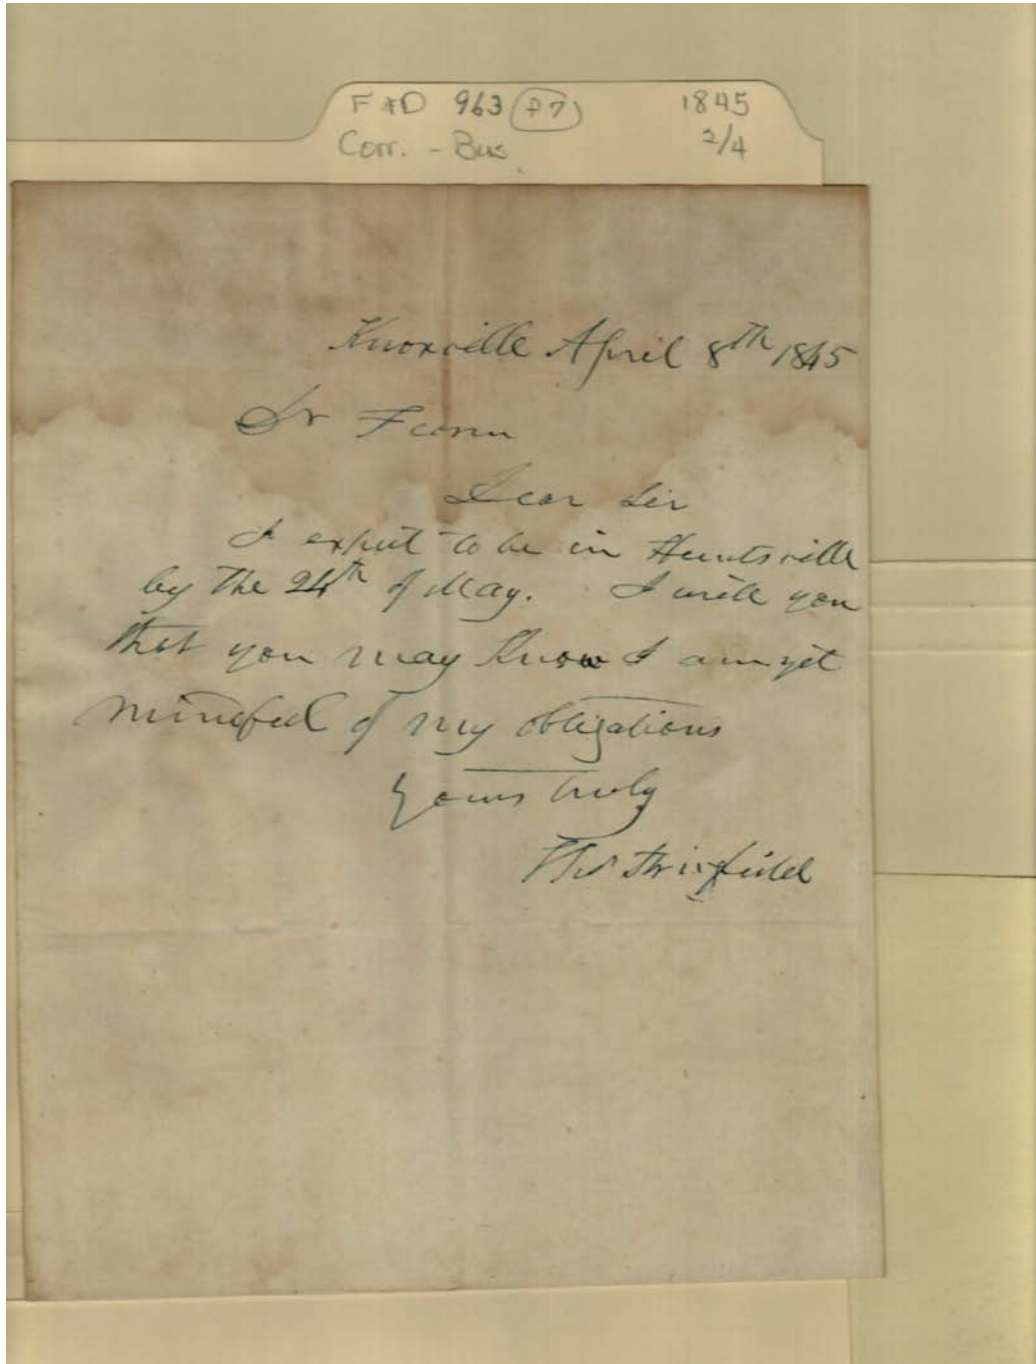 F&D 963 (P7) 1845
Corr. - Bus 2/4
Knoxville April 8th 1845
Dr Fearn
Dear Sir
I expect to be in Huntsville
by the 24th of May. I write you
that you may know I am yet
mindful of my obligations
Yours truly
Thos